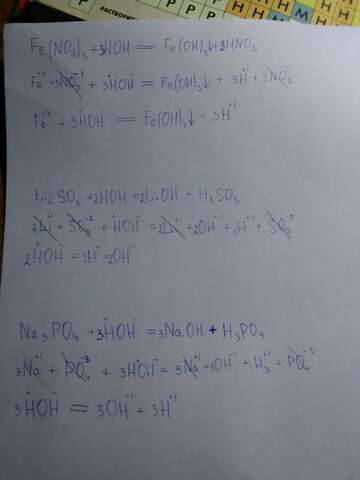 РАСТВОРИ
Р Р Р Р
Н М Н Н
Fe(NO₃)₃ + 3HOH = Fe(OH)₃↓ + 3HNO₃
Fe⁺³ + 3NO₃⁻¹ + 3H⁺OH⁻ = Fe(OH)₃↓ + 3H⁺¹ + 3NO₃⁻¹
Fe⁺³ + 3H⁺OH⁻ = Fe(OH)₃↓ + 3H⁺¹
Li₂SO₃ + 2HOH = 2LiOH + H₂SO₃
2Li⁺¹ + SO₃⁻² + H⁺OH⁻ = 2Li⁺¹ + 2OH⁻¹ + 2H⁺¹ + SO₃⁻²
2H⁺OH⁻ = 2H⁺ + 2OH⁻¹
Na₃PO₄ + 3H⁺OH⁻ = 3NaOH + H₃PO₄
3Na⁺¹ + PO₄⁻³ + 3H⁺OH⁻ = 3Na⁺¹ + 3OH⁻¹ + H₃⁺¹ + PO₄⁻³
3H⁺OH⁻ = 3OH⁻¹ + 3H⁺¹